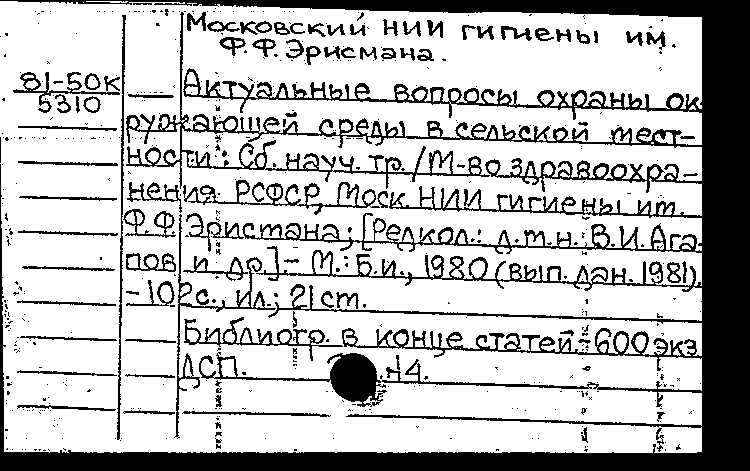 Московский НИИ гигиены им.
Ф.Ф. Эрисмана.
81-50К
5310
Актуальные вопросы охраны ок-
ружающей среды в сельской мест-
ности: Сб. науч. тр. / М-во здравоохра-
нения РСФСР, Моск. НИИ гигиены им.
Ф.Ф. Эрисмана; [Редкол.: д.м.н. В.И. Ага-
пов и др.].- М.: Б.и., 1980 (вып. дан. 1981).
-102с., ил.; 21 см.
Библиогр. в конце статей.-600 экз
ДСП.